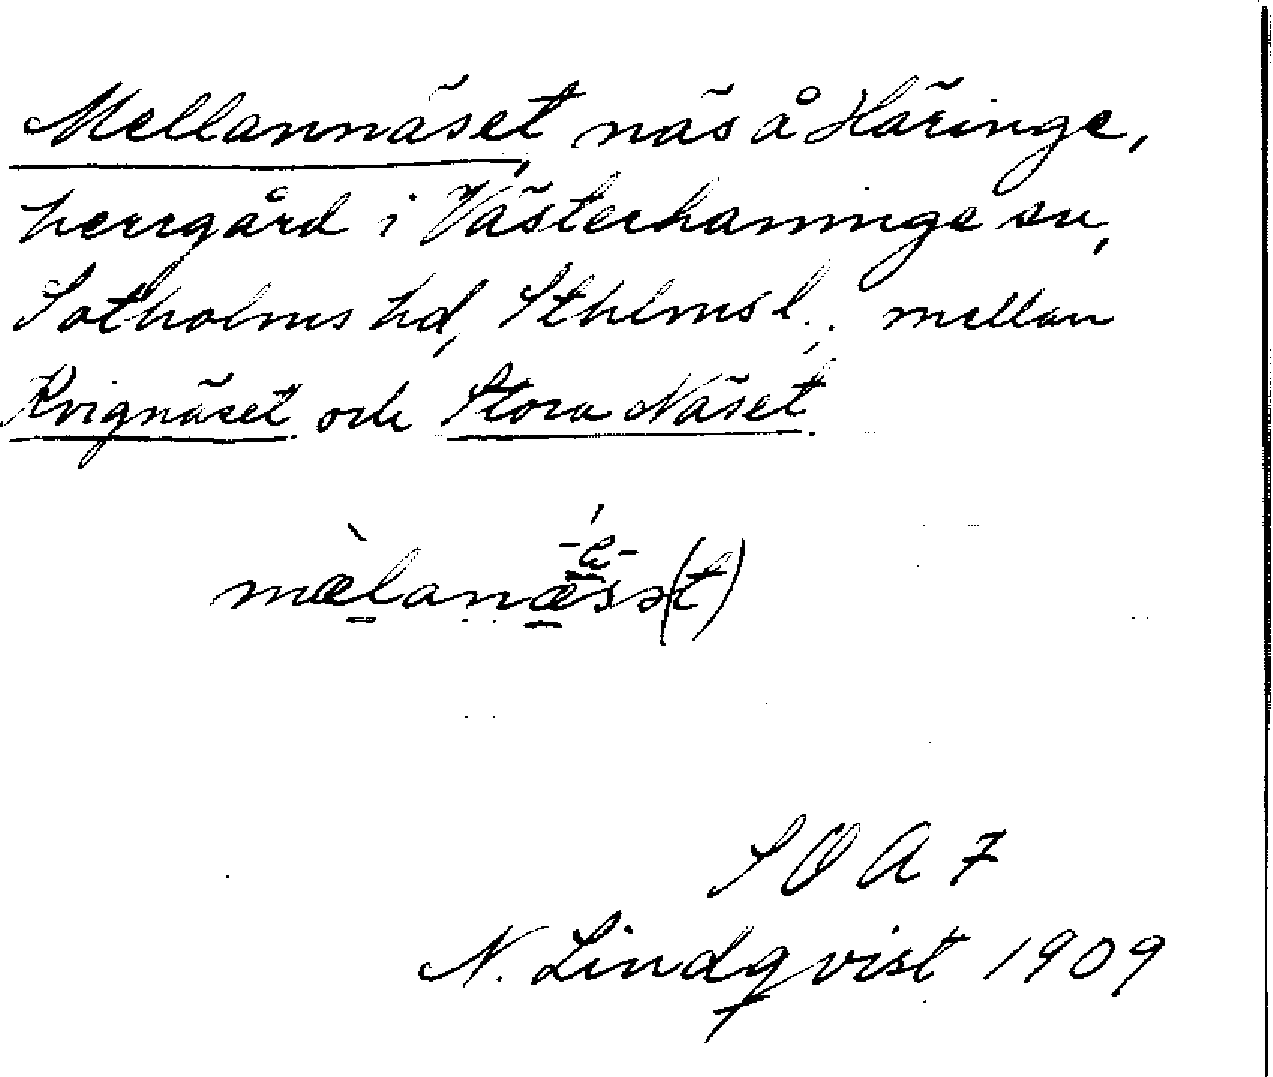 Mellannäset, näs å Häringe,
herrgård i Västerhaninge sn,
Sotholms hd, Sthlms l.; mellan
Kvignäset och Stora Näset.
-e-
mæ̀lanæsət(t)
SOA 7
N. Lindqvist 1909